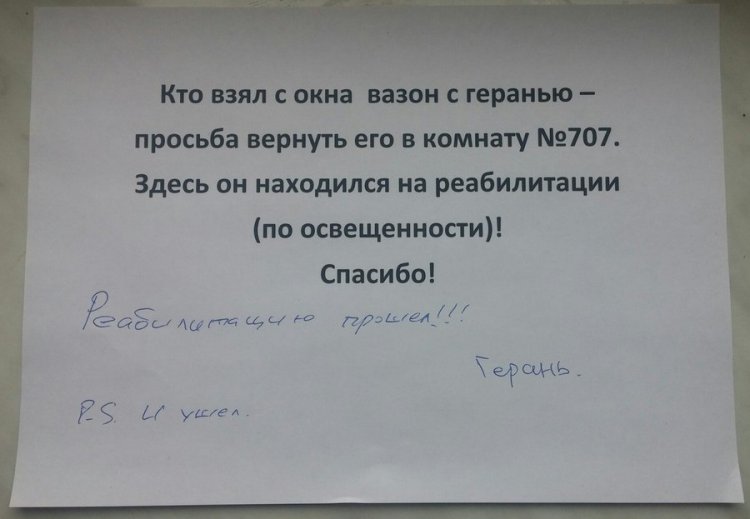 Кто взял с окна вазон с геранью –
просьба вернуть его в комнату №707.
Здесь он находился на реабилитации
(по освещенности)!
Спасибо!
Реабилитацию прошел!!!
Герань.
P.S. И ушел.